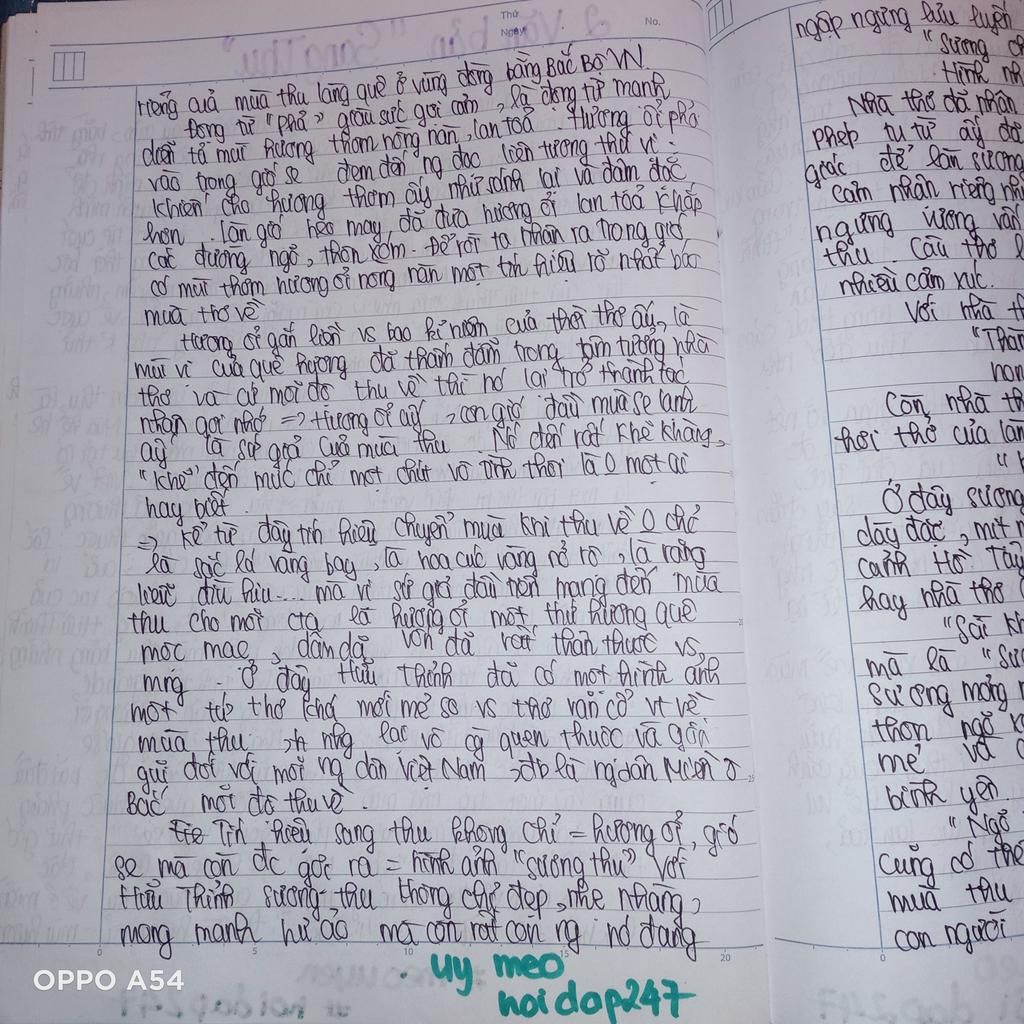 Thứ
Ngày
No.
riêng của mùa thu làng quê ở vùng đồng bằng Bắc Bộ VN.
Động từ "phả" giàu sức gợi cảm, là động từ mạnh
diễn tả mùi hương thơm nồng nàn, lan toả. Hương ổi phả
vào trong gió se đem đến ng đọc liên tưởng thú vị.
khiến cho hương thơm ấy như sánh lại và đậm đặc
hơn. làn gió heo may, đã đưa hương ổi lan toả khắp
các đường ngõ, thôn xóm. Để rồi ta nhận ra trong gió
có mùi thơm hương ổi nồng nàn một tín hiệu rõ nhất báo
mùa trở về
Hương ổi gắn liền vs bao kỉ niệm của thời thơ ấu, là
mùi vị của quê hương đã thấm đẫm trong tâm tưởng nhà
thơ và cứ mỗi độ thu về thì nó lại trở thành tác
nhân gợi nhớ => Hương ổi ấy, cơn gió đầu mùa se lạnh
ấy là sứ giả của mùa thu. Nó đến rất khẽ khàng,
"khẽ" đến mức chỉ một chút vô tình thôi là 0 một ai
hay biết.
=> Kể từ đây tín hiệu chuyển mùa khi thu về 0 chỉ
là sắc lá vàng bay, là hoa cúc vàng nở rộ là rặng
liễu đìu hiu... mà vị sứ giả đầu tiên mang đến mùa
thu cho mỗi cta là hương ổi một thứ hương quê
mộc mạc, dân dã vốn đã rất thân thuộc vs
mng. Ở đây Hữu Thỉnh đã có một hình ảnh
một tứ thơ khá mới mẻ so vs thơ văn cổ vt về
mùa thu, nhg lại vô cg quen thuộc và gần
gũi đối với mỗi ng dân Việt Nam, đb là ng dân Miền
Bắc mỗi độ thu về
Tín hiệu sang thu không chỉ = hương ổi, gió
se mà còn đc gợi ra = hình ảnh "sương thu" Với
Hữu Thỉnh sương thu không chỉ đẹp, nhẹ nhàng,
mong manh hư ảo mà còn rất con ng nó đang
0 5 10 15 20
uy meo
hoidap247
OPPO A54
ngập ngừng lưu luyến
"Sương ch
Hình nh
Nhà thơ đã nhân
phép tu từ ấy đã
giác để làn sương
cảm nhận riêng nh
ngừng vương vấn
thu. Câu thơ l
nhiều cảm xúc.
Với nhà th
"Thàn
non
Còn nhà th
hơi thở của làn
"
Ở đây sương
dày đặc, mịt m
cảnh Hồ Tây
hay nhà thơ
"Sài kh
mà là "Sươ
sương mỏng m
thôn ngõ x
mẻ và
bình yên
"Ngõ
cũng có thể
mùa thu
con người
0